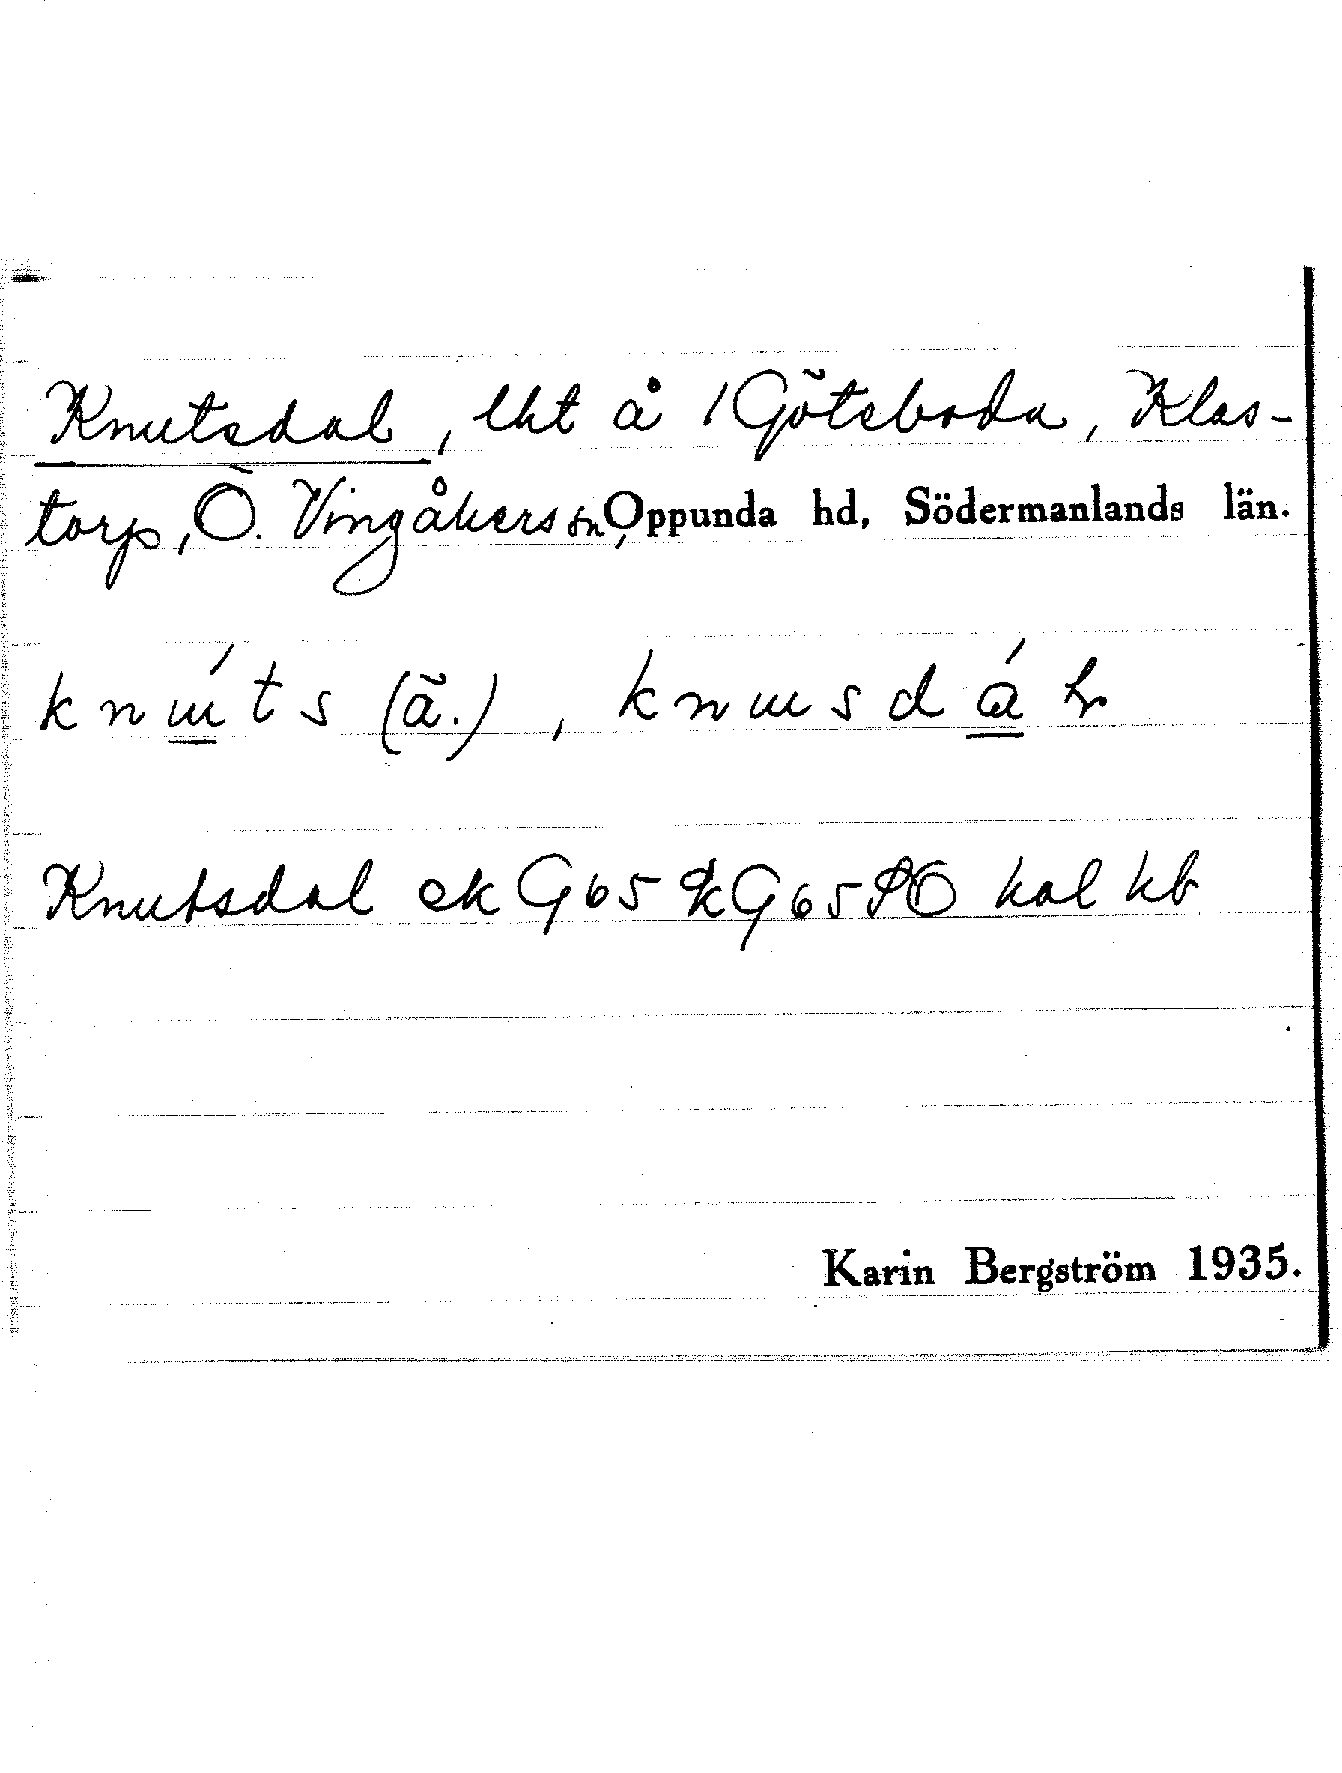 Knutsdal, lht å 1 Göteboda, Klas-
torp, Ö. Vingåkers sn, Oppunda hd, Södermanlands län.
knút s (ã.), knusdá
Knutsdal ek G65 G65 kal kb
Karin Bergström 1935.